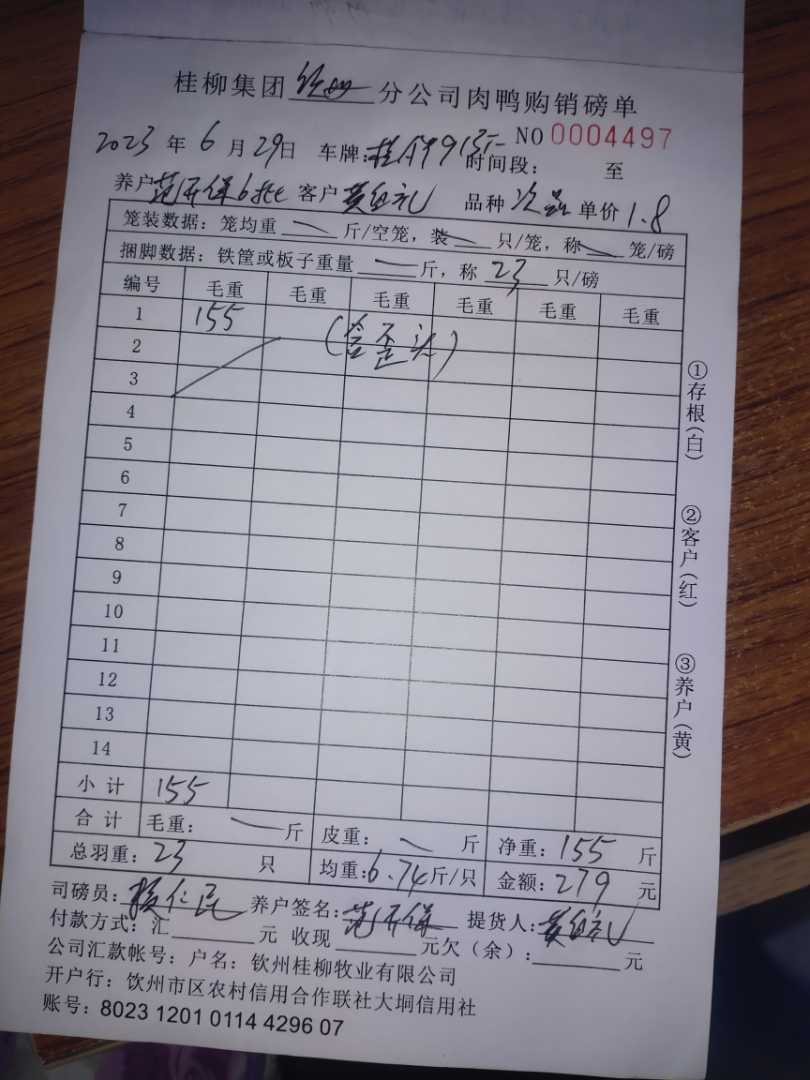 桂柳集团 钦州 分公司肉鸭购销磅单
2023 年 6 月 29 日 车牌: 时间段: 至 NO 0004497
养户 客户 品种 次品 单价 1.8
笼装数据: 笼均重 — 斤/空笼, 装 — 只/笼, 称 — 笼/磅
捆脚数据: 铁筐或板子重量 — 斤, 称 23 只/磅
编号 毛重 毛重 毛重 毛重 毛重 毛重
1 155
2 (含歪头)
3
4
5
6
7
8
9
10
11
12
13
14
小计 155
合计 毛重: — 斤 皮重: — 斤 净重: 155 斤
总羽重: 23 只 均重: 6.74 斤/只 金额: 279 元
司磅员: 养户签名: 提货人:
付款方式: 汇 元 收现 元欠(余): 元
公司汇款帐号: 户名: 钦州桂柳牧业有限公司
开户行: 饮州市区农村信用合作联社大垌信用社
账号: 8023 1201 0114 4296 07
①存根(白)
②客户(红)
③养户(黄)